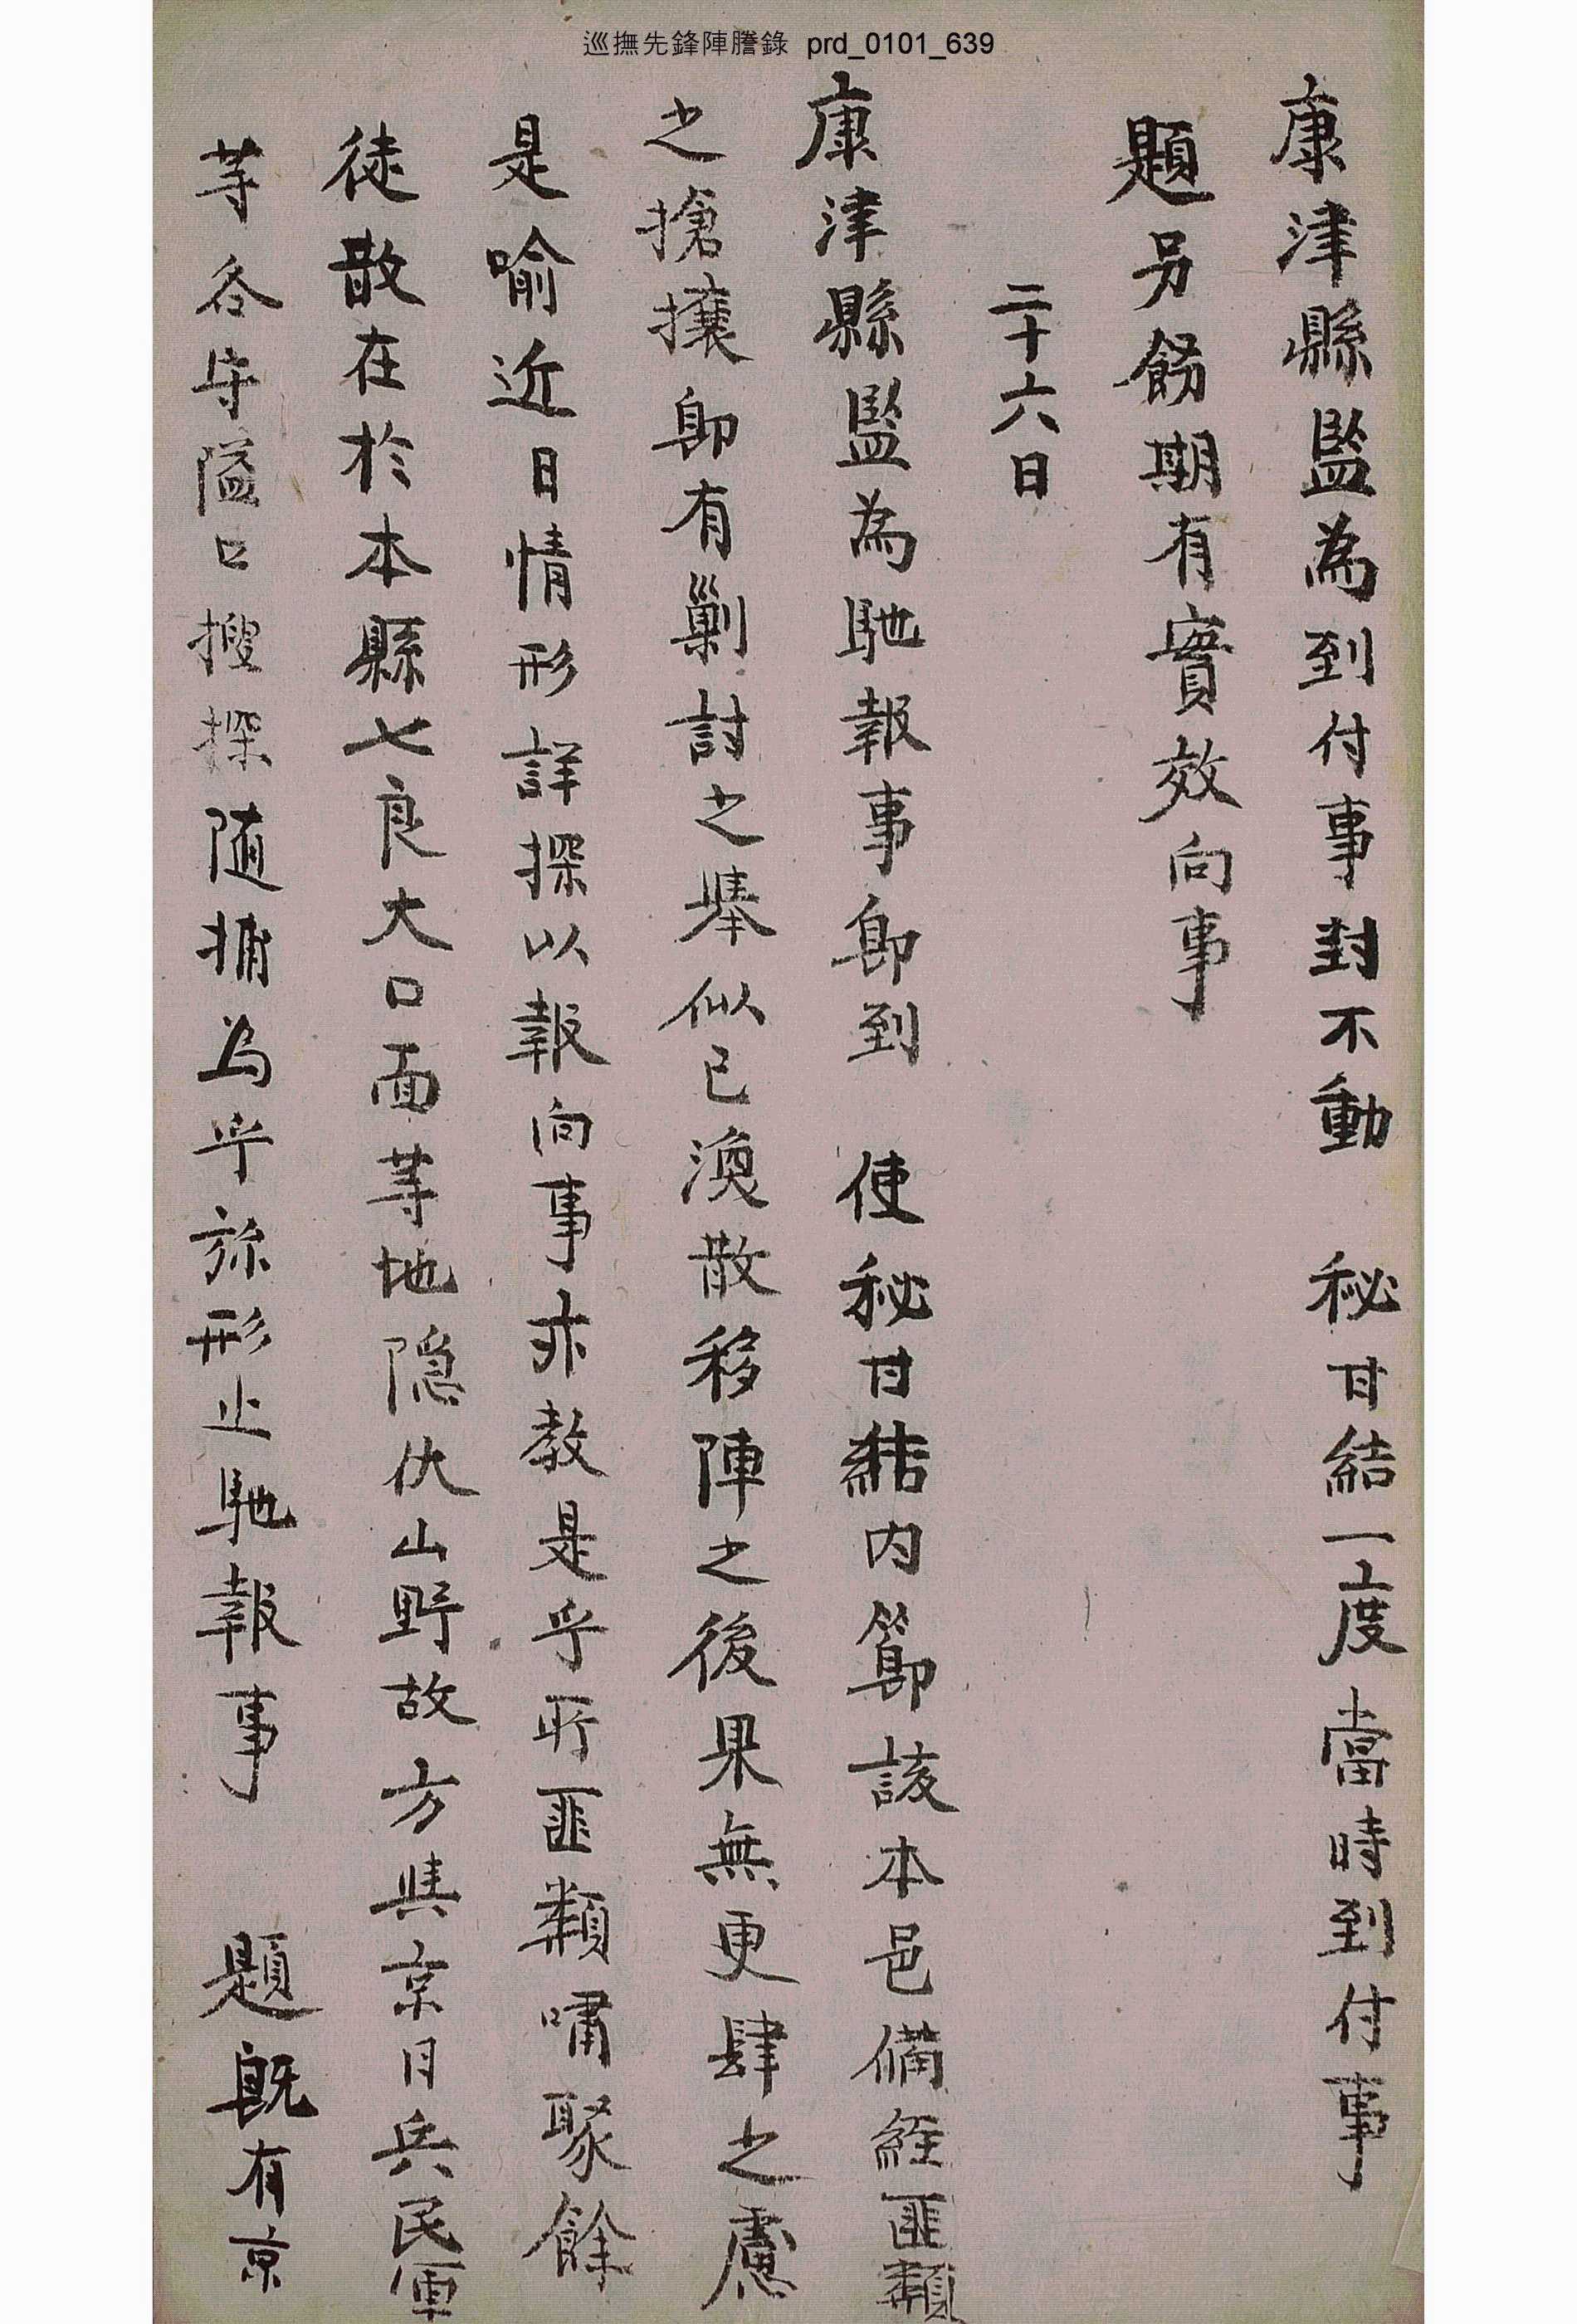 巡撫先鋒陣謄錄 prd_0101_639
康津縣監為到付事封不動 秘甘結一度當時到付事
題另飭期有實效向事
二十六日
康津縣監為馳報事卽到 使秘甘結內節該本邑備經匪類
之搶攘卽有剿討之擧似已渙散移陣之後果無更肆之慮
是喩近日情形詳探以報向事亦敎是乎所匪類嘯聚餘
徒散在於本縣七良大口面等地隱伏山野故方與京日兵民軍
等各守隘口搜探随捕為乎旀形止馳報事 題旣有京